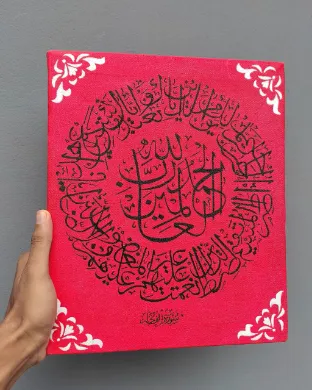 الحمد لله رب العالمين
الرحمن الرحيم مالك يوم الدين إياك نعبد وإياك نستعين اهدنا الصراط المستقيم صراط الذين أنعمت عليهم غير المغضوب عليهم ولا الضالين
سورة الفاتحة